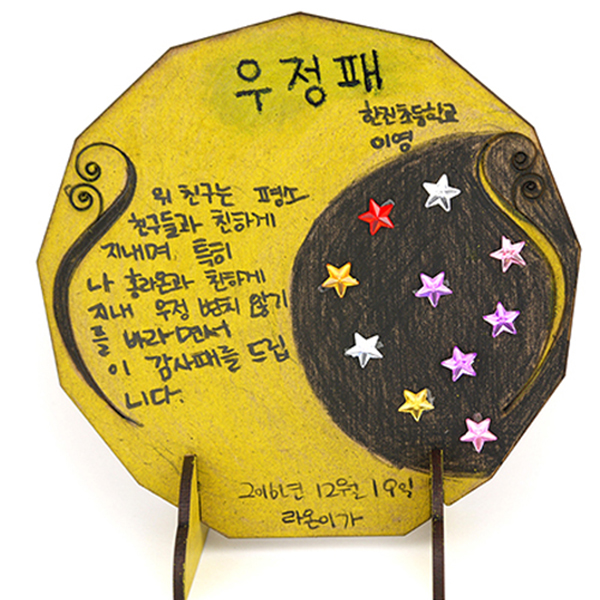 우정패
한진초등학교
이영
위 친구는 평소
친구들과 친하게
지내며 특히
나 홍라온과 친하게
지내 우정 변치 않기
를 바라면서
이 감사패를 드립
니다.
2016년 12월 19일
라온이가